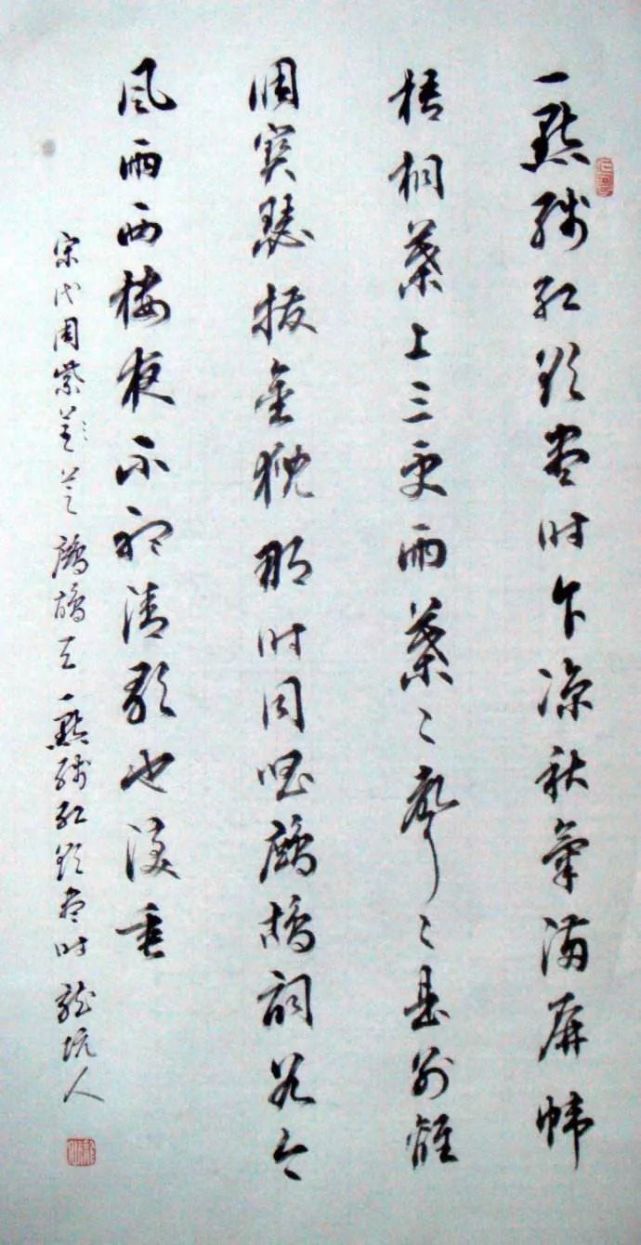 一點殘紅欲盡时乍涼秋氣滿屏幃
梧桐葉上三更雨葉〻聲〻是别離
調寶瑟撥金猊那时同唱鷓鴣詞如今
风雨西樓夜不聽清歌也淚垂
宋代周紫芝鷓鴣天一點殘紅欲盡时 龍坑人